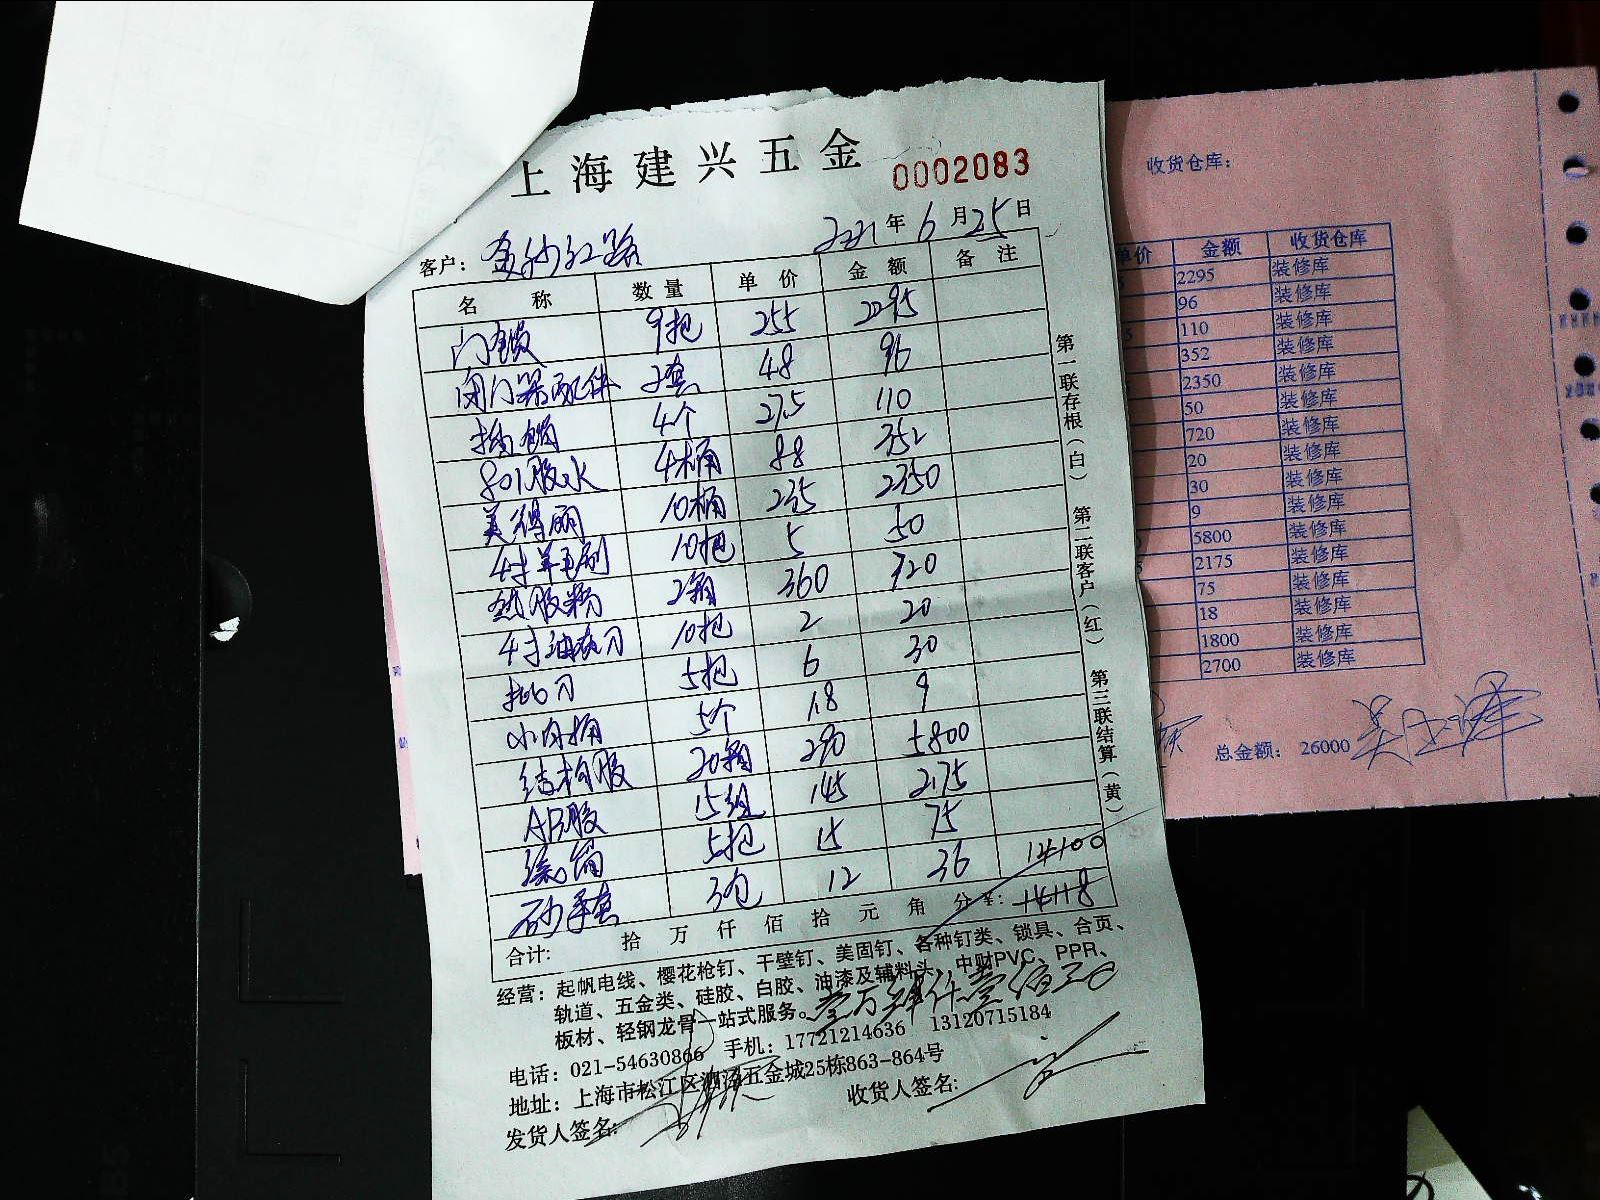 上海建兴五金 0002083
客户: 金沙江路 2021年6月25日
名称 数量 单价 金额 备注
门锁 9把 255 2295
闭门器配件 2套 48 96
插销 4个 27.5 110
801胶水 4桶 88 352
美得丽 10桶 235 2350
4寸羊毛刷 10把 5 50
熟胶粉 2箱 360 720
4寸油灰刀 10把 2 20
批刀 5把 6 30
小白桶 5个 1.8 9
结构胶 20箱 290 5800
AB胶 15组 145 2175
滚筒 5把 15 75
砂手套 3包 12 36
14100
合计: 拾万仟佰拾元角分 ¥: 14118
经营: 起帆电线、樱花枪钉、干壁钉、美固钉、各种钉类、锁具、合页、
轨道、五金类、硅胶、白胶、油漆及辅料头、中财PVC、PPR、
板材、轻钢龙骨一站式服务。
壹万肆仟壹佰
电话: 021-54630866 手机: 17721214636 13120715184
地址: 上海市松江区泗泾五金城25栋863-864号
发货人签名: 收货人签名:
第一联存根(白) 第二联客户(红) 第三联结算(黄)
收货仓库:
单价 金额 收货仓库
2295 装修库
96 装修库
110 装修库
352 装修库
2350 装修库
50 装修库
720 装修库
20 装修库
30 装修库
9 装修库
5800 装修库
2175 装修库
75 装修库
18 装修库
1800 装修库
2700 装修库
总金额: 26000